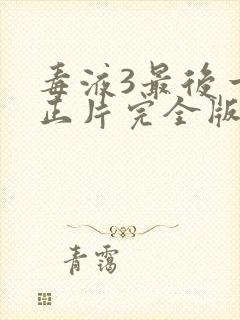 毒液3最后一
正片完全版
青霭